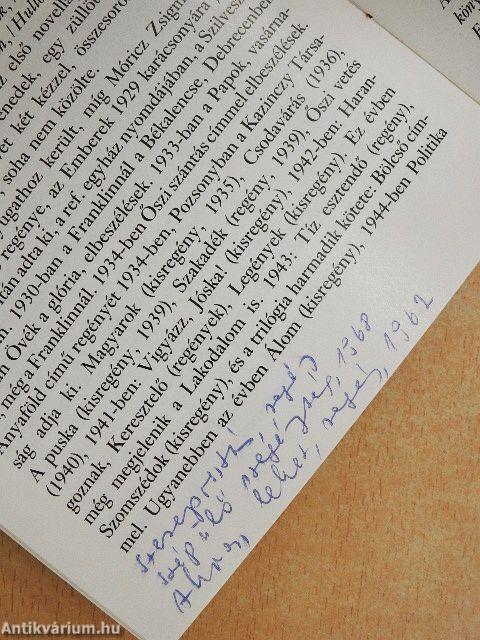 első novellá
enedek, egy züllött
et két kézzel, összesoro
soha nem közölte.
ugathoz került, míg Móricz Zsigm
regénye, az Emberek 1929 karácsonyára
tán adta ki, a ref. egyház nyomdájában, a Szilvesz
1930-ban a Franklinnál a Békalencse, Debrecenbe
Övék a glória, elbeszélések. 1933-ban a Papok, vasárna
, még a Franklinnál. 1934-ben Őszi szántás címmel elbeszélések.
Anyaföld című regényét 1934-ben, Pozsonyban a Kazinczy Társa-
ság adja ki. Magyarok (kisregény, 1935), Csodavárás (1936),
A puska (kisregény, 1939), Szakadék (regény, 1939), Őszi vetés
(1940), 1941-ben: Vigyázz, Jóska! (kisregény), 1942-ben: Haran-
goznak, Keresztelő (regények) Legények (kisregény). Ez évben
még megjelenik a Lakodalom is. 1943: Tíz esztendő (regény),
Szomszédok (kisregény), és a trilógia harmadik kötete: Bölcső cím-
mel. Ugyanebben az évben Álom (kisregény), 1944-ben Politika
szegény, 1968
lehet, regény, 1962
Antikvárium.hu